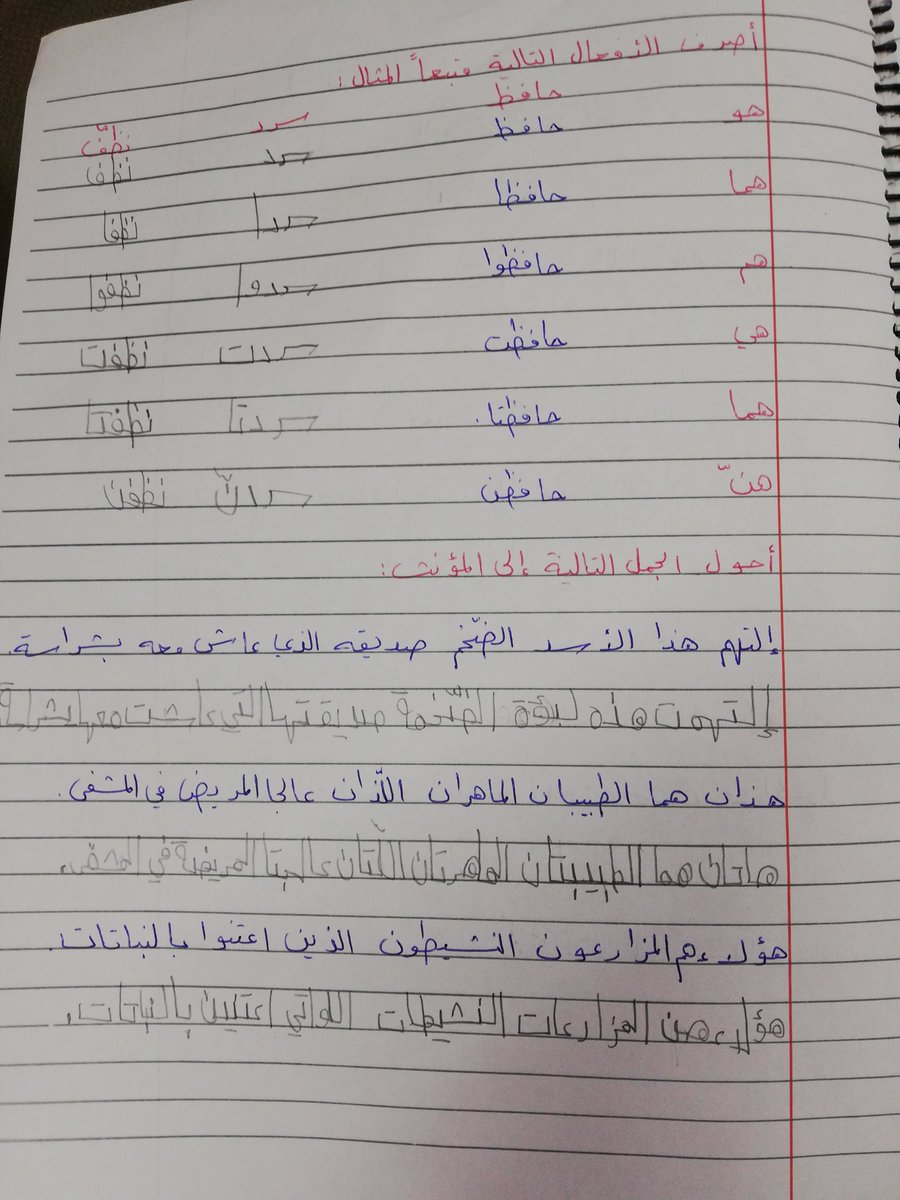 أصرف الأفعال التالية متبعاً المثال:
حافظ سرد نظّف
هو حافظ سرد نظف
هما حافظا سردا نظفا
هم حافظوا سردوا نظفوا
هي حافظت سردت نظفت
هما حافظتا. سردتا نظفتا
هنّ حافظن سردنّ نظفن
أحول الجمل التالية إلى المؤنث:
إلتهم هذا الأسد الضّخم صديقه الذي عاش معه بشراسة.
إلتهمت هذه لبؤة الضّخمة صديقتها التي عاشت معها بشراسة
هذان هما الطبيبان الماهران اللّذان عالجا المريض في المشفى.
هاتان هما الطبيبتان الماهرتان اللّتان عالجتا المريضة في المشفى.
هؤلاء هم المزارعون النشيطون الذين اعتنوا بالنباتات.
هؤلاء هن المزارعات النشيطات اللواتي اعتنين بالنباتات.